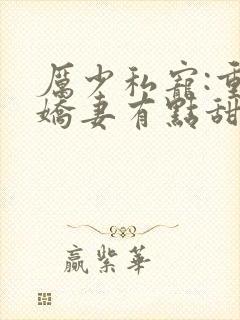 厲少私寵:重
嬌妻有點甜
贏紫華